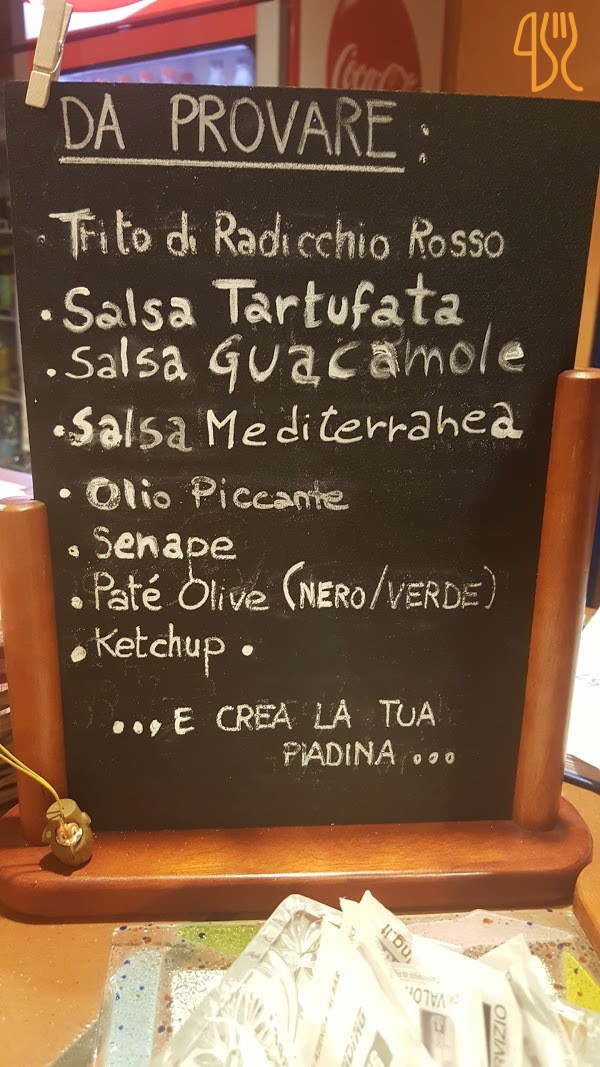 Coca
DA PROVARE :
· Trito di Radicchio Rosso
· Salsa Tartufata
· Salsa Guacamole
· Salsa Mediterranea
· Olio Piccante
· Senape
· Paté Olive (NERO/VERDE)
· Ketchup .
... E CREA LA TUA
PIADINA ...